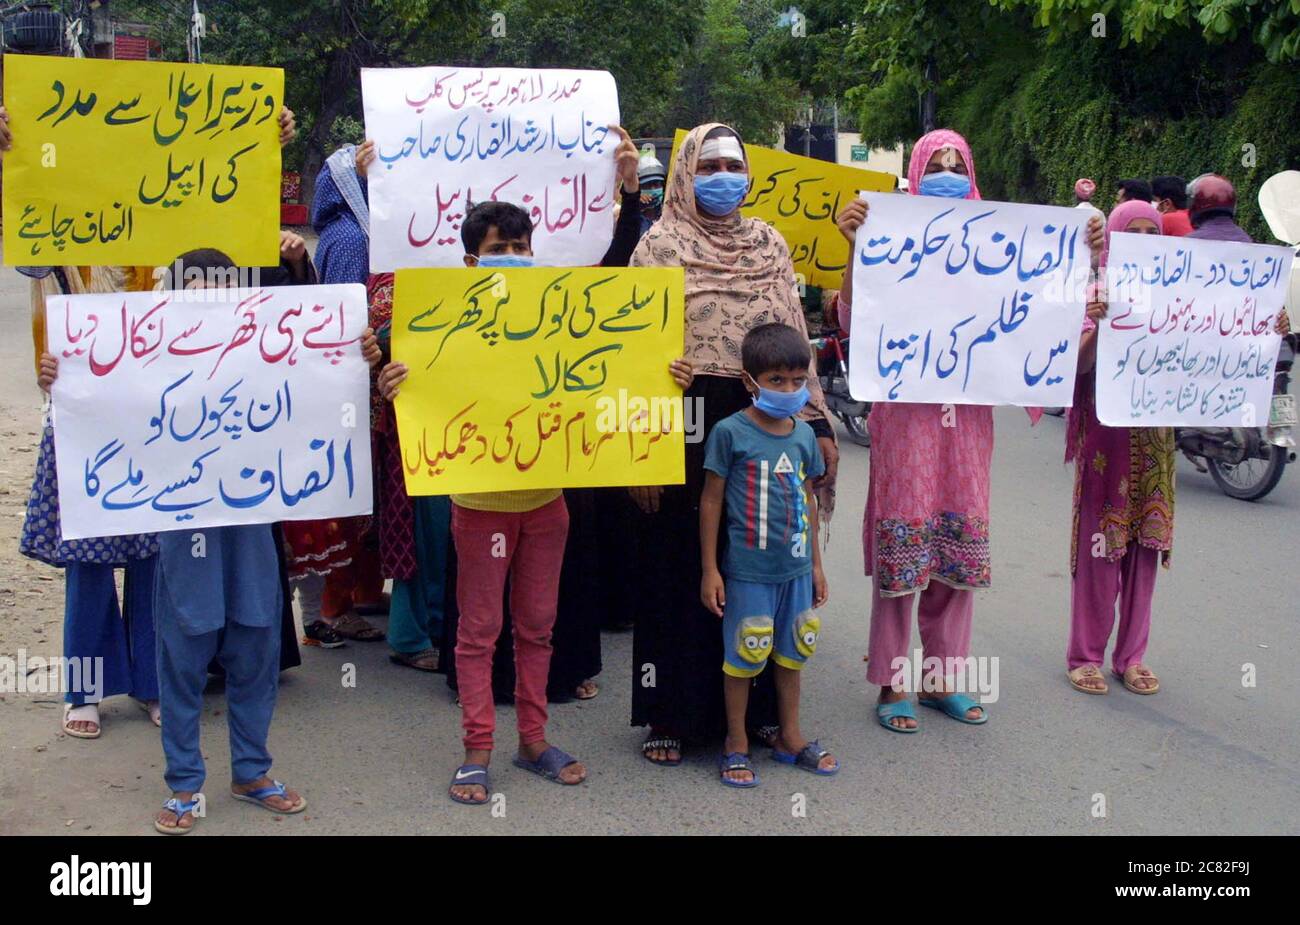 وزیرِاعلیٰ سے مدد
کی اپیل
انصاف چاہئے
صدر لاہور پریس کلب
جناب ارشد انصاری صاحب
سے انصاف کی اپیل
اپنے ہی گھر سے نکال دیا
ان بچوں کو
انصاف کیسے ملے گا
اسلحے کی نوک پر گھر سے
نکالا
ملزم سرعام قتل کی دھمکیاں
انصاف کی حکومت
میں ظلم کی انتہا
انصاف دو - انصاف دو
بھائیوں اور بہنوں نے
بھائیوں اور بھابیھوں کو
تشدد کا نشانہ بنایا
اف کی
اور
alamy
alamy
Image ID: 2C82F9J
www.alamy.com